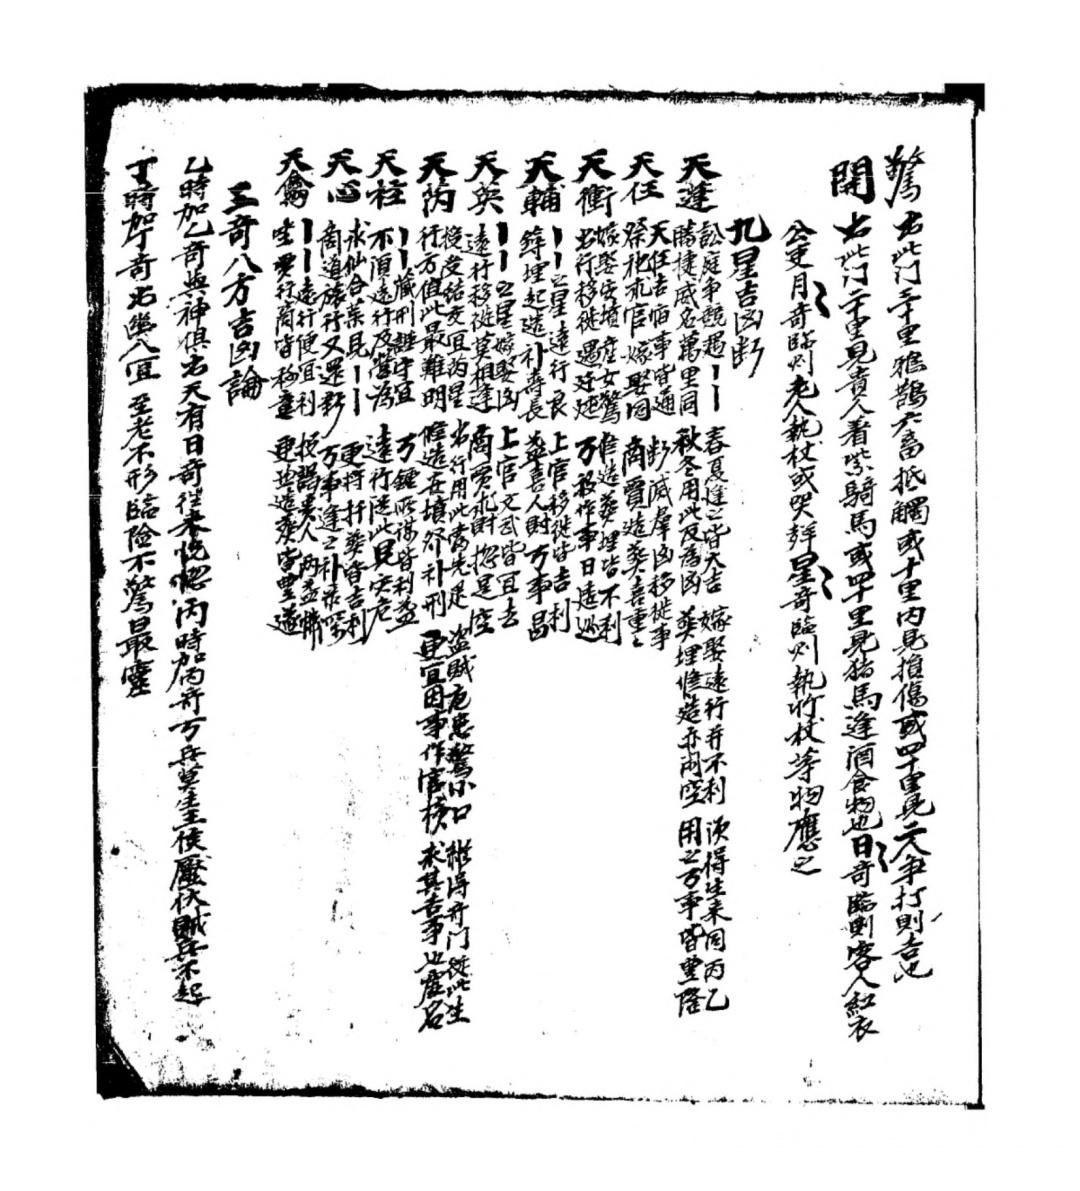 驚 出此门三十里鴉鵲六畜抵觸或十里内見損傷或四十里見二人争打則吉也
開 出此门二十里見貴人着紫騎馬或四十里見猪馬逢酒食物也日奇臨則客人紅衣
公吏月奇臨則老人執杖或哭聲星奇臨則執竹杖等物應之
九星吉凶断
天蓬 訟庭争競遇丨丨 春夏逢之皆大吉 嫁娶遠行并不利 須得生来同丙乙
勝捷威名萬里同 秋冬用此反為凶 葬埋修造亦闹空 用之万事皆豐隆
天任 天任吉宿事皆通 断滅羣凶移徙事
祭祀求官嫁娶同 商賈造葬喜重重
天衝 嫁娶安墳産女驚 修造葬埋皆不利
出行移徙遇 万般作事日
天輔 丨丨之星遠行良 上官移徙皆吉利
葬埋起造补壽長 益喜人財万事昌
天英 丨丨之星嫁娶凶 上官文武皆宜去
遠行移徙莫相逢 商賈求財揔是空
天芮 授受结交宜芮星 出行用此當先退 盗賊危患驚小口 縱得奇门從此生
行方值此最難明 修造在墳祭补刑 更宜因事作官榜 求其吉事也虛名
天柱 丨丨藏形謹守宜 万鍾所謀皆利益
不須遠行及營為 遠行従此見灾危
天心 求仙合藥見丨丨 更将扦葬皆吉利
商道旅行又遷移 万事逢之补
天禽 丨丨遠行便宜利 授謁貴人两益懷
坐賈行商皆称意 更並造葬皆豐遂
三奇八方吉凶論
乙時加乙奇與神俱出天有日奇往来恍惚丙時加丙奇万兵莫生王侯壓伏贼兵不起
丁時加丁奇出幽入冥至老不形臨險不驚曰最靈